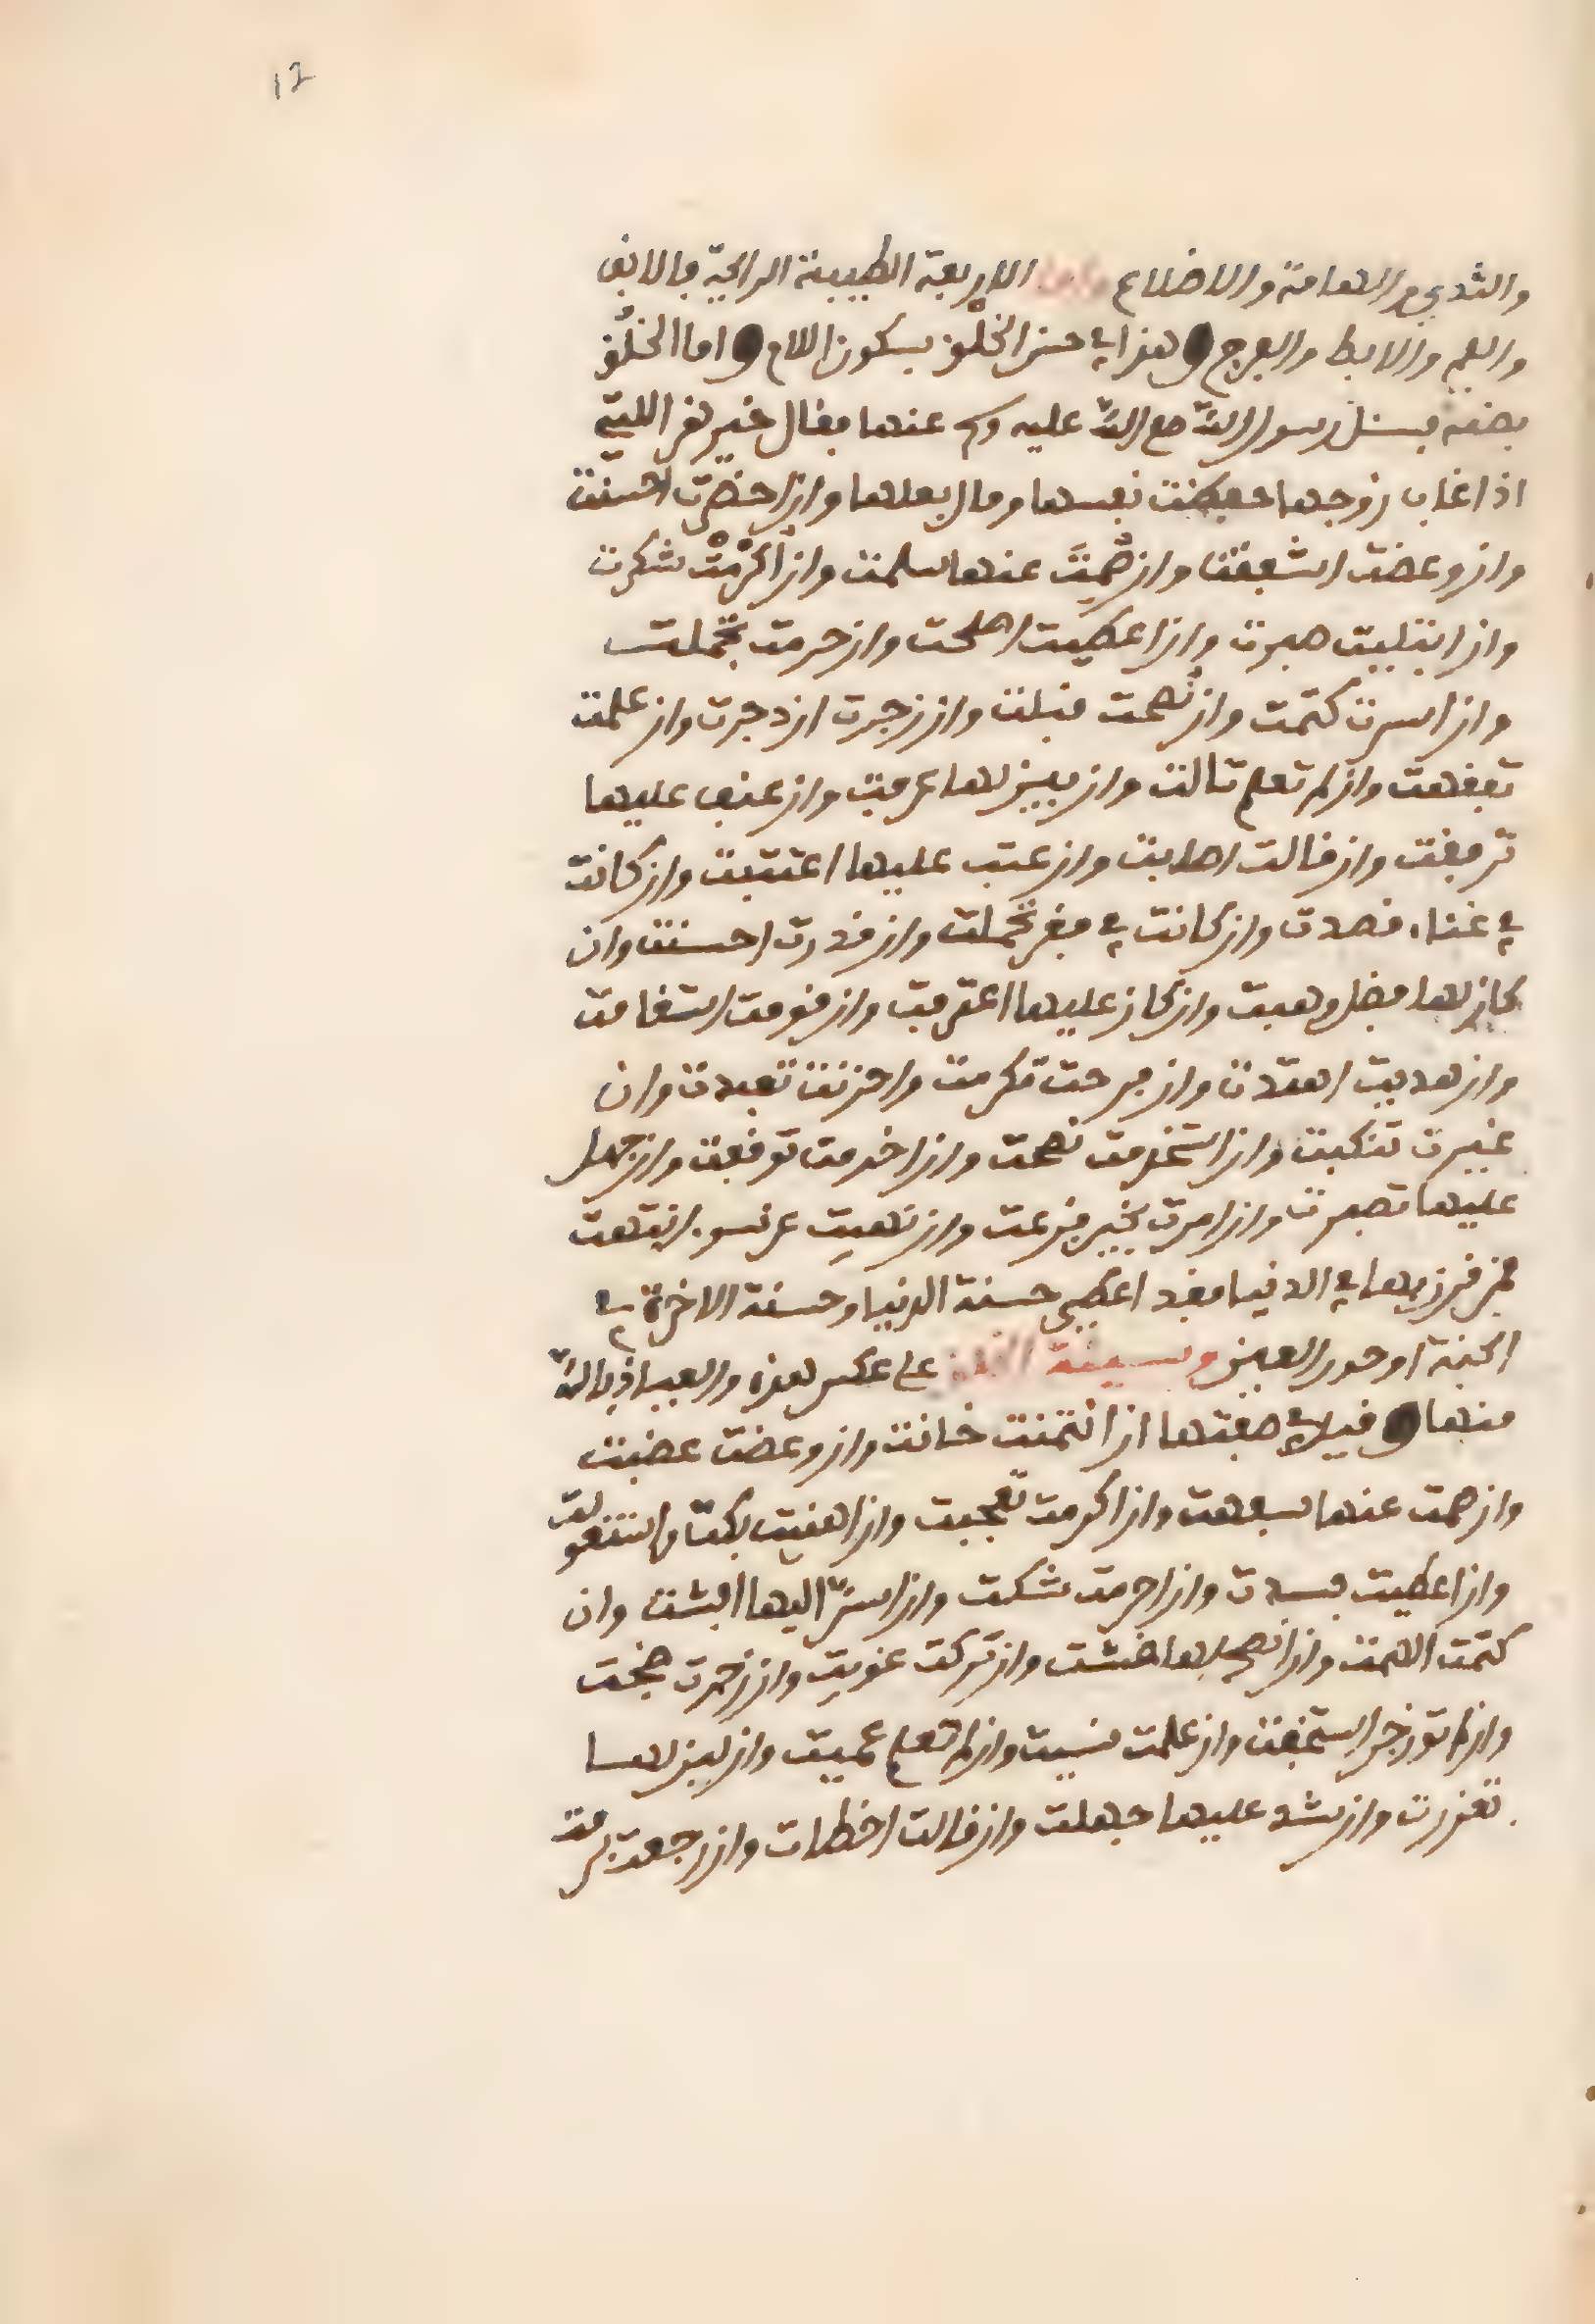 12
والثدي والهامة والاضلاع واما الاربعة الطيبة الرايحة فالانف
والفم والابط والفرج وهذا في حسن الخلْق بسكون اللام واما الخلُق
فسئل رسول الله صلى الله عليه وسلم عنها فقال خير هن اللتي
اذا غاب زوجها حفظت نفسها ومال بعلها وان احضرت احسنت
وان وعضت اشفقت وان صُمِتَ عنها سلمت وان اكرمت شكرت
وان ابتليت صبرت وان اعطيت اصلحت وان حرمت تجملت
وان اسرت كتمت وان نصحت قبلت وان زجرت ازدجرت وان علمت
تفقهت وان لم تعلم سالت وان بين لها عرفت وان عنف عليها
ترفقت وان قالت اصابت وان عتب عليها اعتتبت وان كانت
في غناء قصدت وان كانت في فقر تجملت وان قدرت احسنت وان
كان لها فضل وهبت وان كان عليها اعترفت وان قومت استقامت
وان هديت اهتدت وان فرحت تكرمت وا حزنت تعبدت وان
غيرت تنكبت وان استخدمت نصحت وان اخدمت توقفت وان جهل
عليها تصبرت وان امرت بخير فزعت وان نهيت عن سوء انتهت
فمن قرن بها في الدنيا فقد اعطي حسنة الدنيا وحسنة الاخرة في
الجنة او حور العين وسيئة الخلق على عكس هذه والعياذ بالله
منها وقيل في صفتها ان ائتمنت خانت وان وعضت عضبت
وان صمت عنها سفهت وان اكرمت تعجبت وان اهنيت بكت واستغولت
وان اعطيت فسدت وان احرمت شكت وان اسرّ اليها افشت وان
كتمت اتهمت وان انصح لها غشت وان تركت غويت وان زجرت ضجت
وان لم تزجر استخفت وان علمت نسيت وان لم تعلم عميت وان بين لها
تعزرت وان شد عليها جهلت وان قالت اخطات وان رجعت